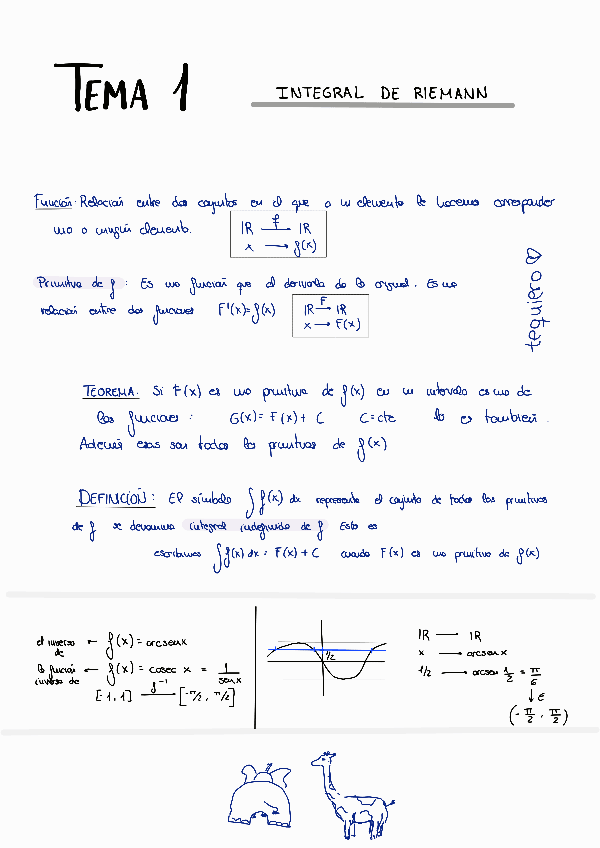 TEMA 1
INTEGRAL DE RIEMANN
Función: Relación entre dos conjuntos en el que a un elemento le hacemos corresponder
uno o ningún elemento.
IR f→ IR
x → f(x)
Primitiva de f: Es una función que al derivarla da la original. Es una
relación entre dos funciones F'(x)=f(x)
IR F→ IR
x → F(x)
teguibro
TEOREMA. Si F(x) es una primitiva de f(x) en un intervalo es una de
las funciones: G(x)= F(x)+ C C=cte lo es también.
Además esas son todas las primitivas de f(x)
DEFINICIÓN: El símbolo ∫f(x) dx representa el conjunto de todas las primitivas
de f se denomina integral indefinida de f Esto es
escribimos ∫f(x) dx = F(x) + C cuando F(x) es una primitiva de f(x)
el inverso de ← f(x) = arcsen x
la función inversa de ← f(x) = cosec x = 1/sen x
[-1, 1] f⁻¹→ [-π/2, π/2]
1/2
IR → IR
x → arcsen x
1/2 → arcsen 1/2 = π/6
↓ ∈
(-π/2, π/2)